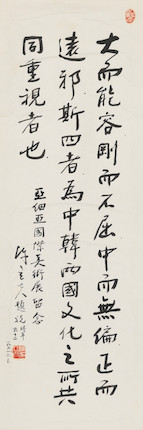 大而能容剛而不屈中而無偏正而
遠邪斯四者為中韓兩國文化之所共
同重視者也
亞細亞國際美術展留念